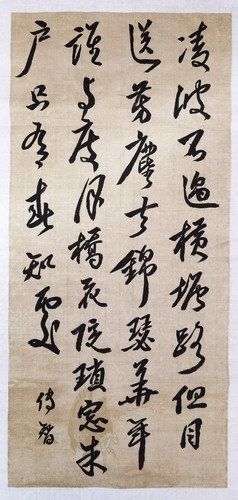 凌波不過橫塘路但目
送芳塵去錦瑟華年
誰與度月橋花院瑣窗朱
戶只有春知處
傳智